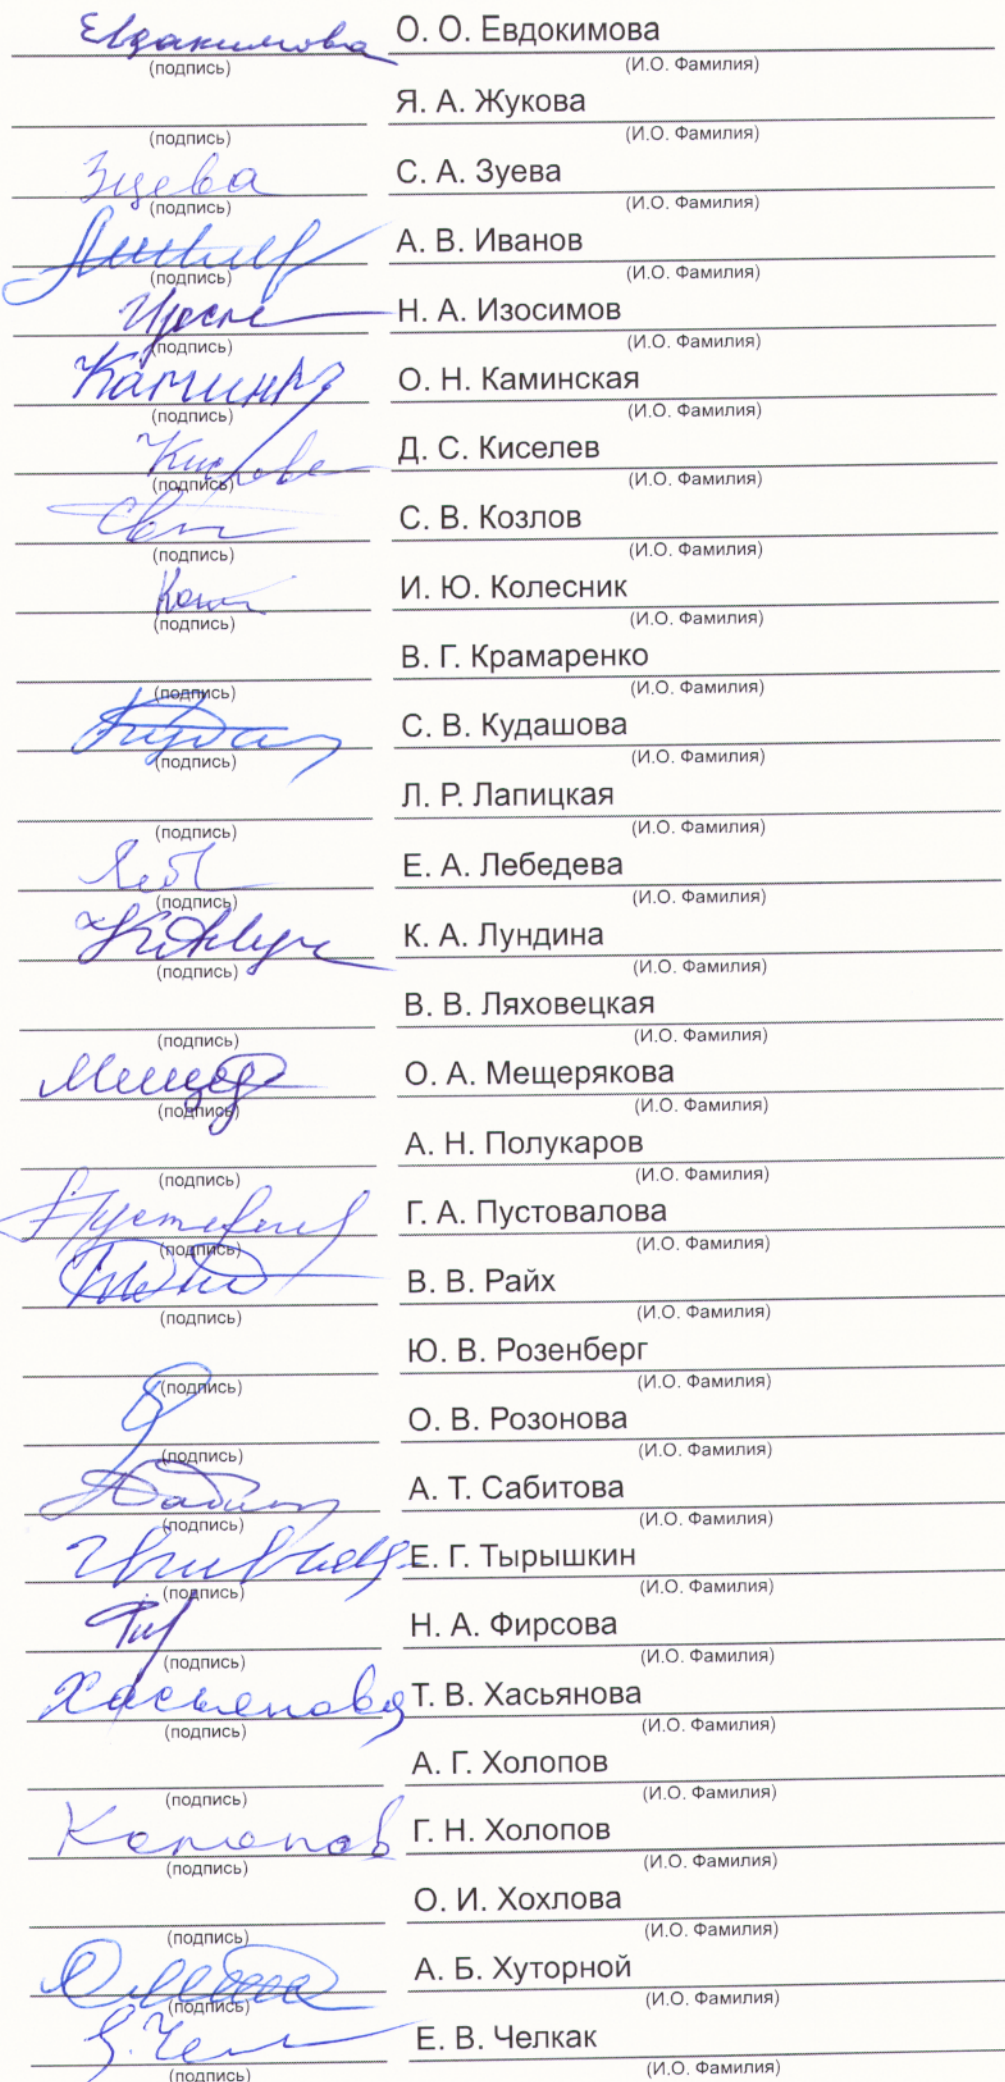 Евдакимова О. О. Евдокимова
(подпись) (И.О. Фамилия)
Я. А. Жукова
(подпись) (И.О. Фамилия)
Зуева С. А. Зуева
(подпись) (И.О. Фамилия)
А. В. Иванов
(подпись) (И.О. Фамилия)
Н. А. Изосимов
(подпись) (И.О. Фамилия)
О. Н. Каминская
(подпись) (И.О. Фамилия)
Д. С. Киселев
(подпись) (И.О. Фамилия)
С. В. Козлов
(подпись) (И.О. Фамилия)
И. Ю. Колесник
(подпись) (И.О. Фамилия)
В. Г. Крамаренко
(подпись) (И.О. Фамилия)
С. В. Кудашова
(подпись) (И.О. Фамилия)
Л. Р. Лапицкая
(подпись) (И.О. Фамилия)
Е. А. Лебедева
(подпись) (И.О. Фамилия)
К. А. Лундина
(подпись) (И.О. Фамилия)
В. В. Ляховецкая
(подпись) (И.О. Фамилия)
О. А. Мещерякова
(подпись) (И.О. Фамилия)
А. Н. Полукаров
(подпись) (И.О. Фамилия)
Г. А. Пустовалова
(подпись) (И.О. Фамилия)
В. В. Райх
(подпись) (И.О. Фамилия)
Ю. В. Розенберг
(подпись) (И.О. Фамилия)
О. В. Розонова
(подпись) (И.О. Фамилия)
А. Т. Сабитова
(подпись) (И.О. Фамилия)
Е. Г. Тырышкин
(подпись) (И.О. Фамилия)
Н. А. Фирсова
(подпись) (И.О. Фамилия)
Хасьянова Т. В. Хасьянова
(подпись) (И.О. Фамилия)
А. Г. Холопов
(подпись) (И.О. Фамилия)
Г. Н. Холопов
(подпись) (И.О. Фамилия)
О. И. Хохлова
(подпись) (И.О. Фамилия)
А. Б. Хуторной
(подпись) (И.О. Фамилия)
Е. В. Челкак
(подпись) (И.О. Фамилия)